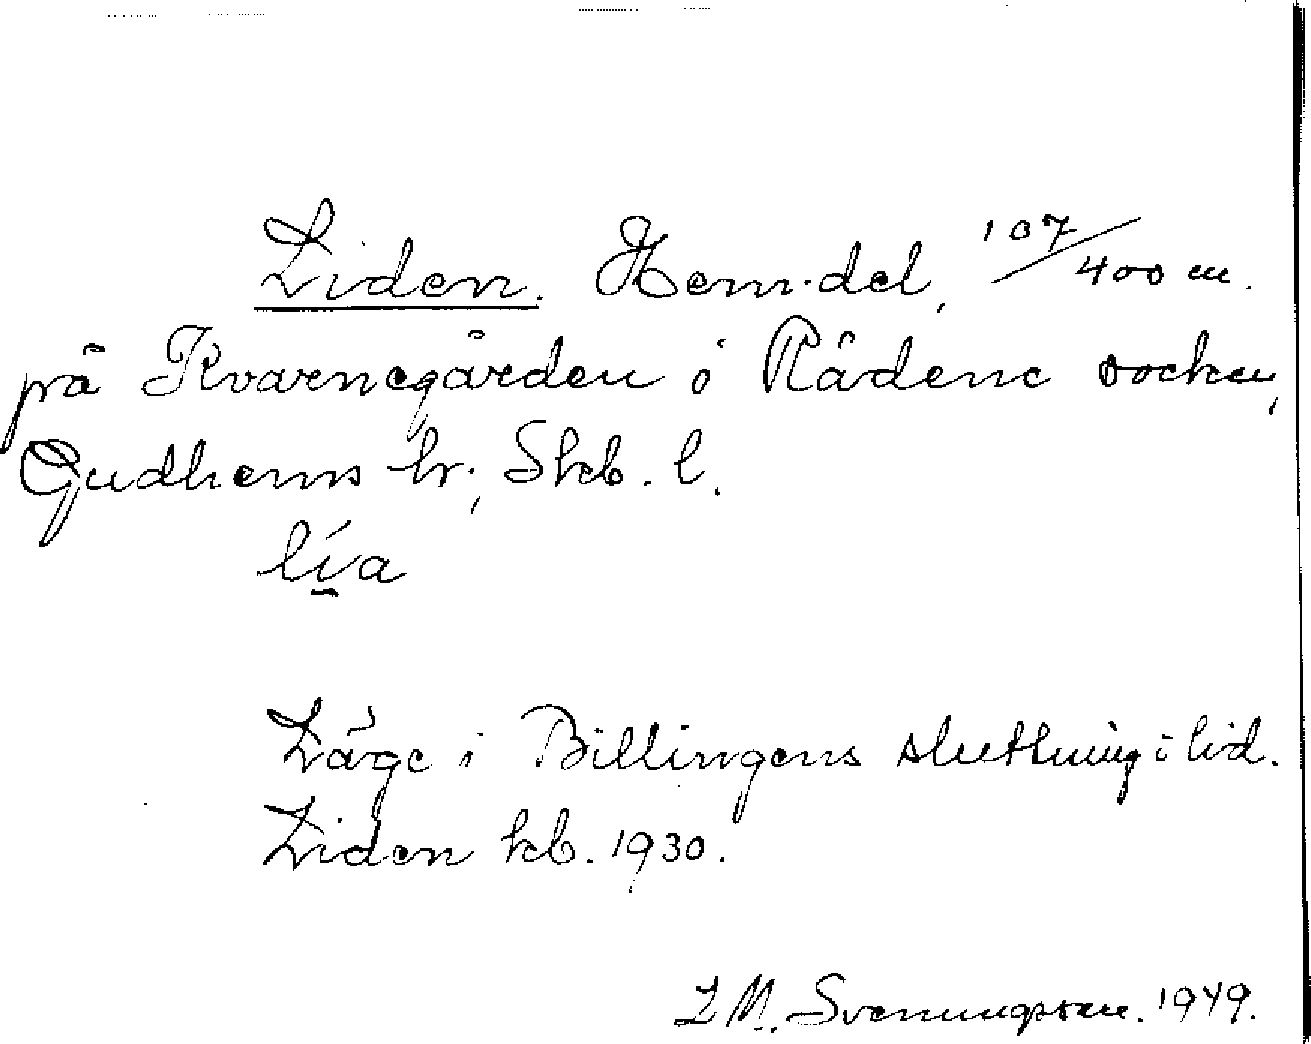 Liden. Hem.del, 107/400 m.
på Kvarnegården i Rådene socken,
Gudhems hr; Skb. l.
lía
Läge i Billingens sluttning i lid.
Liden kb. 1930.
L M. Svenungsson. 1949.